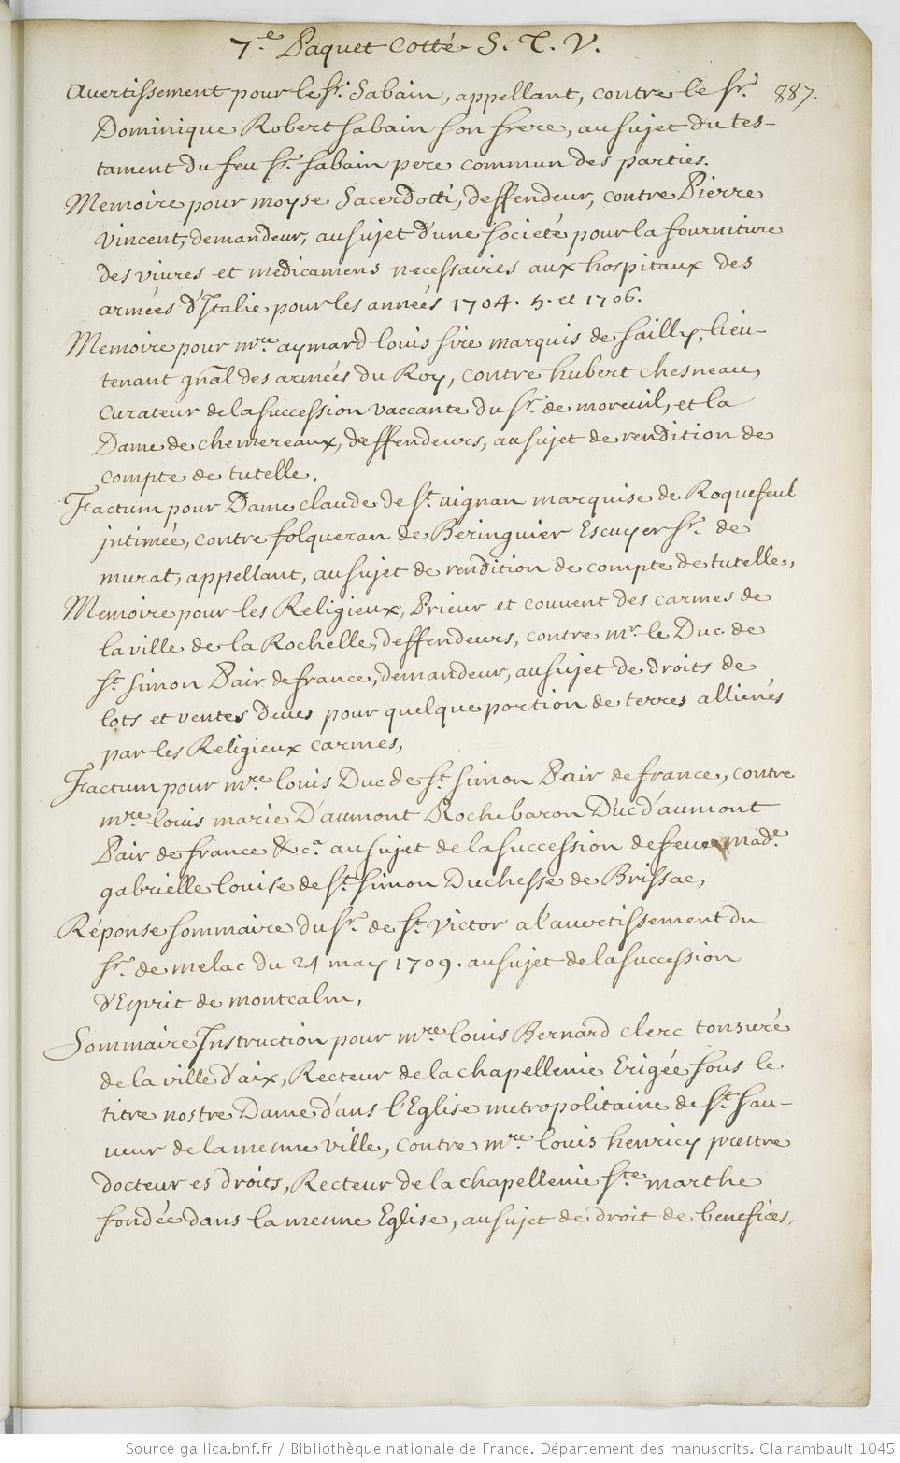 7.e Paquet Cotté S. T. V.
887.
Avertissement pour le Sr. Sabain, appellant, contre le Sr.
Dominique Robert Sabain son frere, au sujet du tes-
tament du feu Sr. Sabain pere commun des parties.
Memoire pour moyse Sacerdotti, deffendeur, contre Pierre
Vincent, demandeur, au sujet d'une societé pour la fourniture
des vivres et medicamens necessaires aux hospitaux des
armées d'Italie pour les années 1704. 5. et 1706.
Memoire pour mre. aymard louis sire marquis de Sailly, lieu-
tenant gnãl des armées du Roy, contre hubert chesneau,
curateur de la succession vaccante du Sr. de moreuil, et la
Dame de chemereaux, deffendeurs, au sujet de rendition de
compte de tutelle.
Factum pour Dame claude de St. aignan marquise de Roquefeuil
jntimée, contre folqueran de Beringuier Escuyer Sr. de
murat, appellant, au sujet de rendition de compte de tutelle,
Memoire pour les Religieux, Prieur et couvent des carmes de
la ville de la Rochelle, deffendeurs, contre mr. le Duc de
St. Simon Pair de france, demandeur, au sujet de droits de
lots et ventes deues pour quelque portion de terres allienés
par les Religieux carmes,
Factum pour mre. louis Duc de St. Simon Pair de france, contre
mre. louis marie D'aumont Rochebaron Duc d'aumont
Pair de france &ca. au sujet de la succession de feue made.
gabrielle louise de St. Simon Duchesse de Brissac,
Réponse sommaire du Sr. de St. Victor a l'avertissement du
Sr. de melac du 21 may 1709. au sujet de la succession
d'Esprit de montcalm,
Sommaire Instruction pour mre. louis Bernard clerc tonsuré
de la ville d'aix, Recteur de la chapellenie Erigée sous le
titre nostre Dame d'ans l'Eglise metropolitaine de St. Sau-
veur de la mesme ville, contre mre. louis henricy prestre
docteur es droits, Recteur de la chapellenie Ste. marthe
fondée dans la mesme Eglise, au sujet de droit de benefices,
Source gallica.bnf.fr / Bibliothèque nationale de France. Département des manuscrits. Clairambault 1045